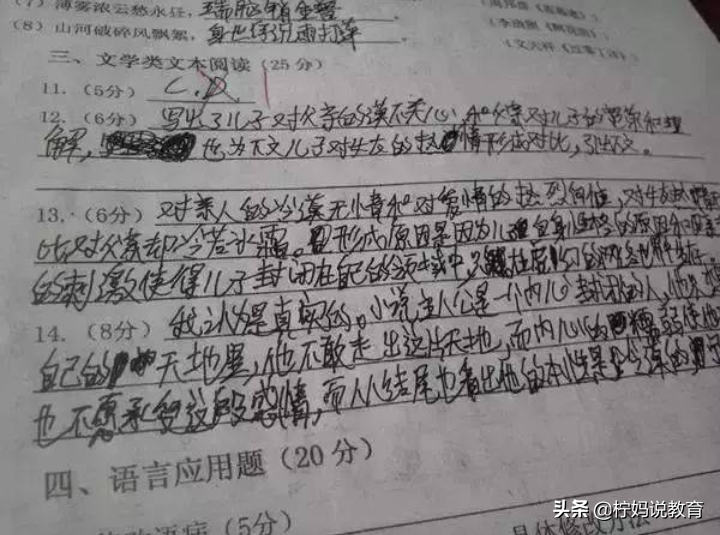 (7) 薄雾浓云愁永昼，瑞脑销金兽。
(8) 山河破碎风飘絮，身世浮沉雨打萍
《文天祥《过零丁洋》）
三、文学类文本阅读（25分）
11.（5分） C.D
12.（6分） 写出了儿子对父亲的漠不关心，和父亲对儿子的宽容和理
解， 也为下文儿子对女友的热情形成对比，引出下文。
13.（6分） 对亲人的冷漠无情和对爱情的热烈向往，对女友热情
比对父亲却冷若冰霜。形成原因是因为儿自身性格的原因和
的刺激使得儿子封闭在自己的领域中只
14.（8分） 我认为是真实的。小说主人公是一个内心封闭的人，他
自己的天地里，他不敢走出这片天地，而内心的懦弱使他
也不愿承受这段感情，而从结尾也看出他的本性是冷漠的
四、语言应用题（20分）
（5分）
具体修改方法
头条 @柠妈说教育